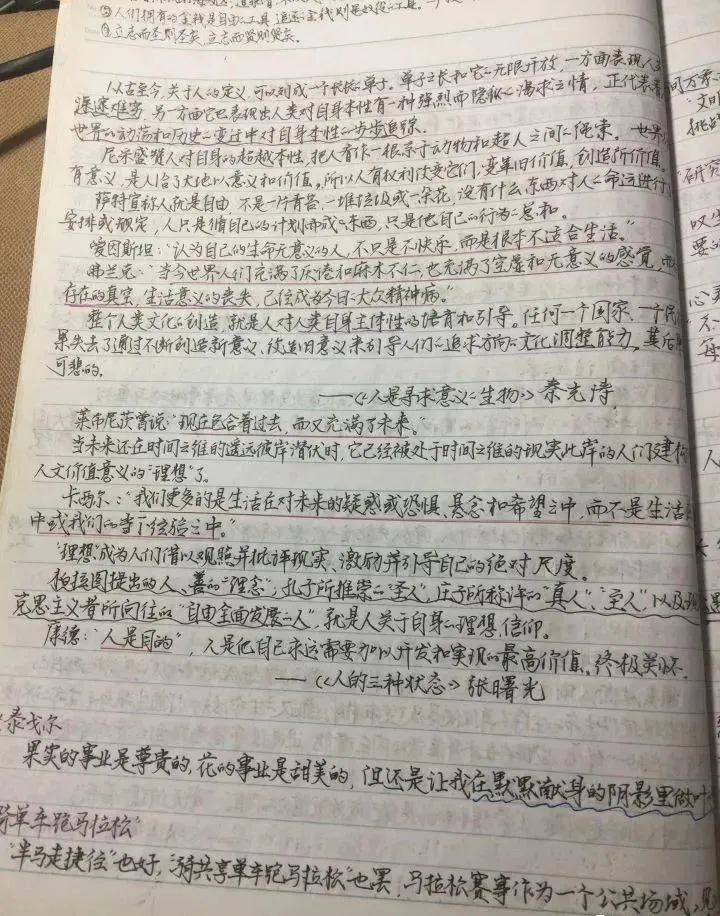 ②人们拥有的金钱是自由的工具,追逐的金钱则是奴役的工具。
③立志而圣则圣矣,立志而贤则贤矣。
从古至今,关于人的定义,可以列成一个长长的单子。单子之长和它的无限开放,一方面表现人
另一方面它也表现出人类对自身本性有一种强烈而隐秘的渴求之情,正代表着
世界的动荡和历史的变迁中对自身本性的步步追踪。
尼采盛赞人对自身的超越本性,把人看作一根系于动物和超人之间的绳索。世界
有意义,是人给了大地以意义和价值。所以人有权利改变它们,变革旧价值,创造新价值。
萨特宣称人就是自由,不是一片青苔、一堆垃圾或一朵花,没有什么东西对人的命运进行
安排或规定,人只是循自己的计划而成的东西,只是他自己的行为的总和。
爱因斯坦:“认为自己的生命无意义的人,不只是不快乐,而是根本不适合生活。”
弗兰克:“当今世界人们充满了厌倦和麻木不仁,也充满了空虚和无意义的感觉,
存在的真空,生活意义的丧失,已经成为今日的大众精神病。”
整个人类文化的创造,就是人对人类自身主体性的培育和引导。任何一个国家、一个民
果失去了通过不断创造新意义、改造旧意义来引导人们的追求方向的文化调整能力,其后
可悲的。
——《人是寻求意义的生物》秦光涛
莱布尼茨曾说:“现在包含着过去,而又充满了未来。”
当未来还在时间之维的遥远彼岸潜伏时,它已经被处于时间之维的现实此岸的人们建构
人文价值意义的“理想”了。
卡西尔:“我们更多的是生活在对未来的疑惑或恐惧、悬念和希望之中,而不是生活
中或我们的当下经验之中。”
“理想”成为人们借以观照并批评现实、激励并引导自己的绝对尺度。
柏拉图提出的人、善的“理念”,孔子所推崇的“圣人”,庄子所称许的“真人”、“至人”,以及
克思主义者所向往的“自由全面发展的人”,就是人关于自身的理想、信仰。
康德:“人是目的”,人是他自己永远需要加以开发和实现的最高价值、终极关怀。
——《人的三种状态》张曙光
泰戈尔
果实的事业是尊贵的,花的事业是甜美的,但还是让我在默默献身的阴影里做叶
骑单车跑马拉松”
“半马走捷径”也好,“骑共享单车跑马拉松”也罢,马拉松赛事作为一个公共场域,